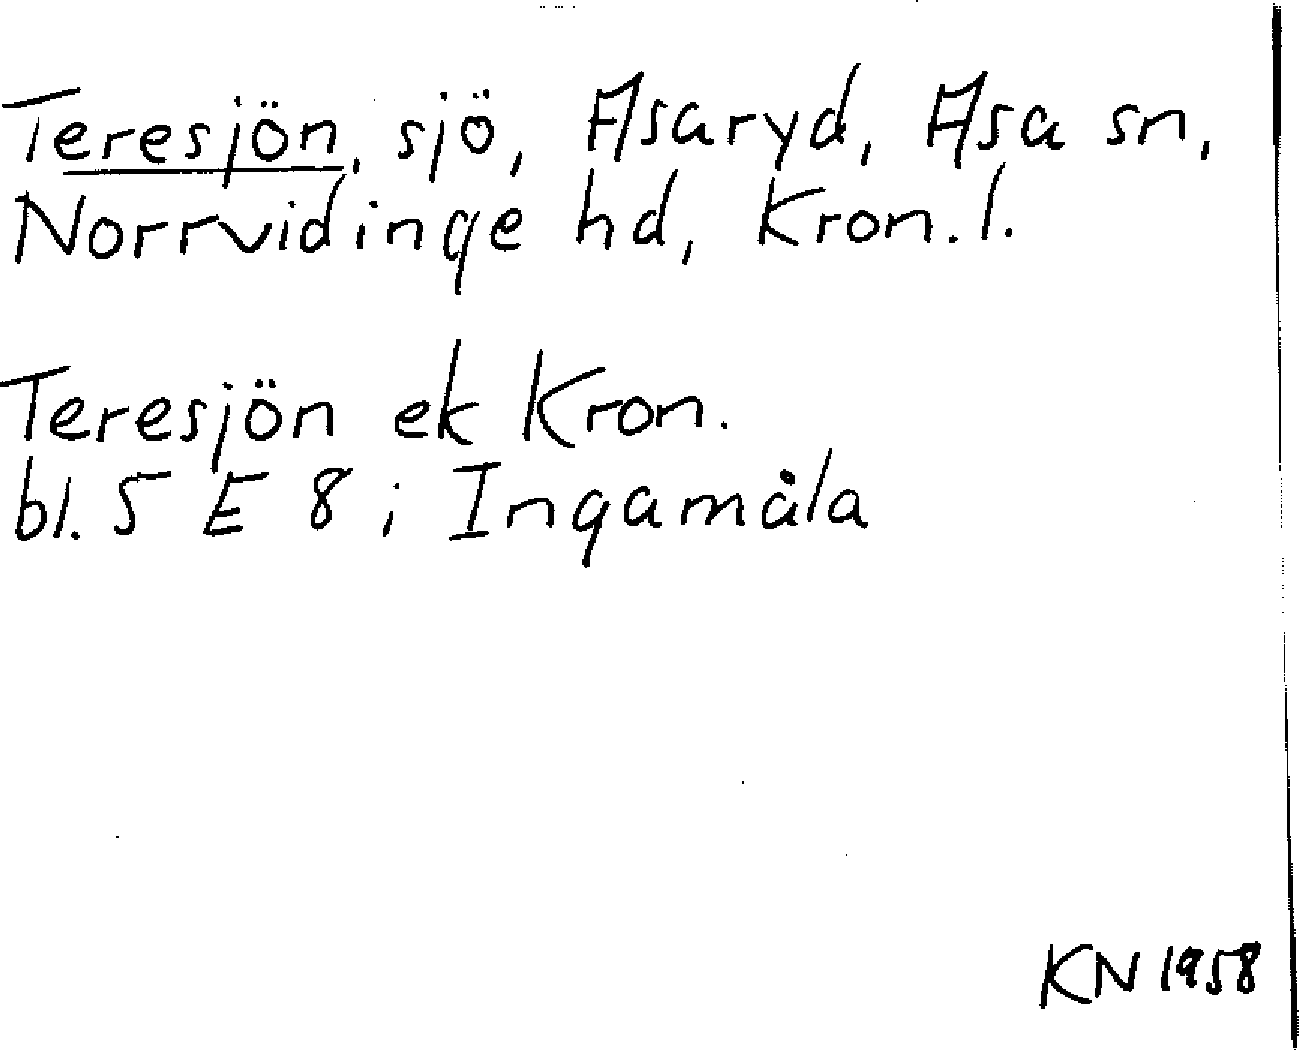 Teresjön, sjö, Asaryd, Asa sn,
Norrvidinge hd, Kron. l.
Teresjön ek Kron.
bl. 5 E 8 i Ingamåla
KN 1958